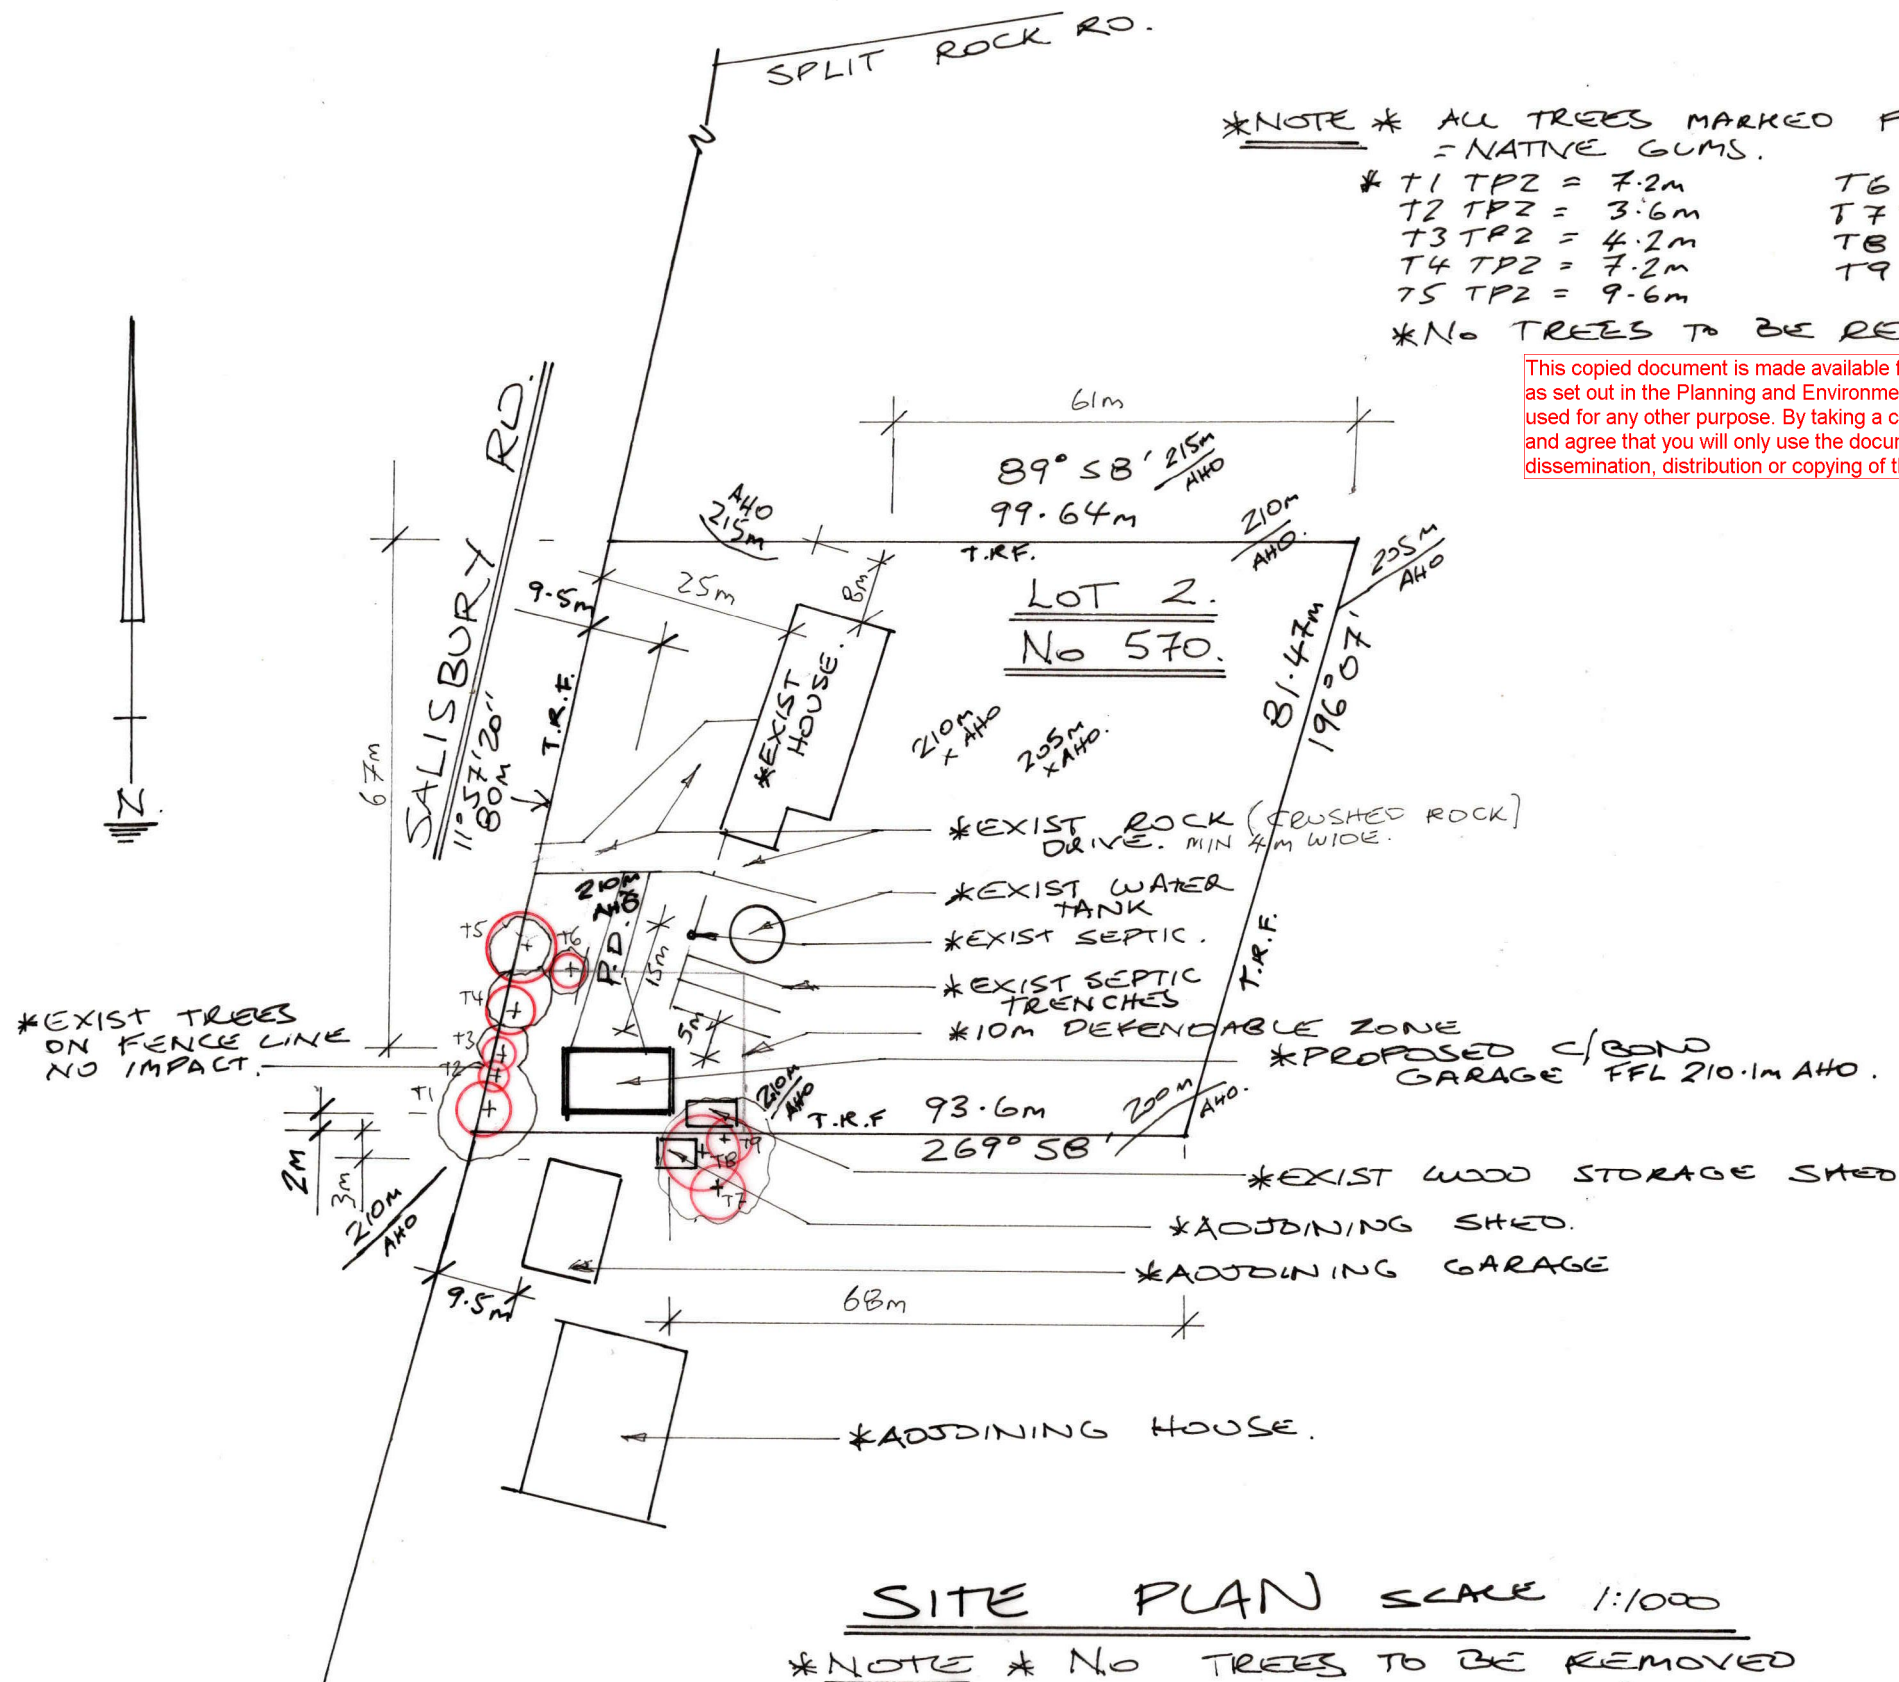 SPLIT ROCK RD.
*NOTE * ALL TREES MARKED F
= NATIVE GUMS.
* T1 TPZ = 7.2m T6
T2 TPZ = 3.6m T7
T3 TPZ = 4.2m T8
T4 TPZ = 7.2m T9
T5 TPZ = 9.6m
*No TREES TO BE RE
This copied document is made available f
as set out in the Planning and Environme
used for any other purpose. By taking a c
and agree that you will only use the docur
dissemination, distribution or copying of th
61m
89° 58'
99.64m
215m
AHD
AHD
215m
210m
AHD.
205m
AHD
T.R.F.
SALISBURY RD.
11° 57' 20"
80m
T.R.F.
9.5m
25m
8m
LOT 2.
No 570.
*EXIST
HOUSE.
81.47m
196° 07'
210m
x AHD
205m
x AHD.
67m
N.
*EXIST ROCK (CRUSHED ROCK)
DRIVE. MIN 4m WIDE.
*EXIST WATER
TANK
*EXIST SEPTIC.
*EXIST SEPTIC
TRENCHES
*10m DEFENDABLE ZONE
*PROPOSED C/BOND
GARAGE FFL 210.1m AHD.
T.R.F.
210m
AHD
P.D.
15m
5m
T5
T6
T4
T3
T2
T1
*EXIST TREES
ON FENCE LINE
NO IMPACT.
210m
AHD
T.R.F
93.6m
269° 58'
200m
AHD.
T9
T8
T7
2m
3m
210m
AHD
*EXIST WOOD STORAGE SHED
*ADJOINING SHED.
*ADJOINING GARAGE
9.5m
68m
*ADJOINING HOUSE.
SITE PLAN SCALE 1:1000
*NOTE * No TREES TO BE REMOVED